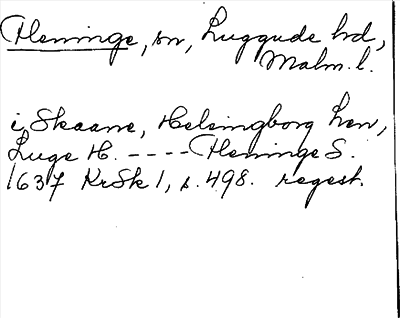 Fleninge, sn, Luggude hd,
Malm. l.
i Skaane, Helsingborg Len,
Luge H. ---- Fleninge S.
1637 KrSk 1, s. 498. regest.